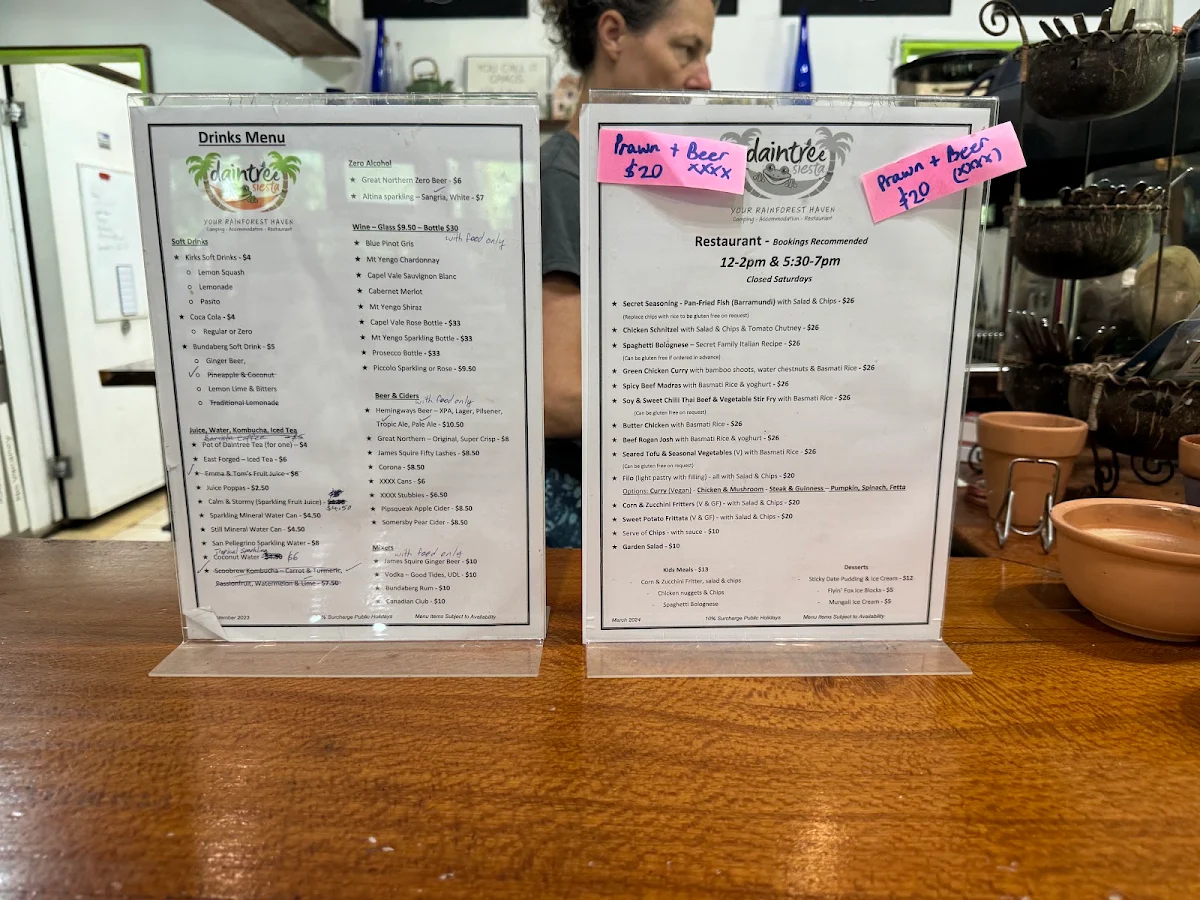 YOU CALL IT
CHAOS
Drinks Menu
daintree
siesta
YOUR RAINFOREST HAVEN
Camping - Accommodation - Restaurant
Soft Drinks
★ Kirks Soft Drinks - $4
○ Lemon Squash
○ Lemonade
○ Pasito
★ Coca Cola - $4
○ Regular or Zero
★ Bundaberg Soft Drink - $5
○ Ginger Beer,
○ Pineapple & Coconut
○ Lemon Lime & Bitters
○ Traditional Lemonade
Juice, Water, Kombucha, Iced Tea
★ Pot of Daintree Tea (for one) - $4
★ East Forged – Iced Tea - $6
★ Emma & Tom's Fruit Juice - $6
★ Juice Poppas - $2.50
★ Calm & Stormy (Sparkling Fruit Juice) -
$4.50
★ Sparkling Mineral Water Can - $4.50
★ Still Mineral Water Can - $4.50
★ San Pellegrino Sparkling Water - $8
Tropical Sparkling
★ Coconut Water $6
★ Scoobrew Kombucha – Carrot & Turmeric,
Passionfruit, Watermelon & Lime - $7.50
Zero Alcohol
★ Great Northern Zero Beer - $6
★ Altina sparkling – Sangria, White - $7
Wine – Glass $9.50 – Bottle $30
with food only
★ Blue Pinot Gris
★ Mt Yengo Chardonnay
★ Capel Vale Sauvignon Blanc
★ Cabernet Merlot
★ Mt Yengo Shiraz
★ Capel Vale Rose Bottle - $33
★ Mt Yengo Sparkling Bottle - $33
★ Prosecco Bottle - $33
★ Piccolo Sparkling or Rose - $9.50
Beer & Ciders
with food only
★ Hemingways Beer – XPA, Lager, Pilsener,
Tropic Ale, Pale Ale - $10.50
★ Great Northern – Original, Super Crisp - $8
★ James Squire Fifty Lashes - $8.50
★ Corona - $8.50
★ XXXX Cans - $6
★ XXXX Stubbies - $6.50
★ Pipsqueak Apple Cider - $8.50
★ Somersby Pear Cider - $8.50
Mixers
with food only
★ James Squire Ginger Beer - $10
★ Vodka – Good Tides, UDL - $10
★ Bundaberg Rum - $10
★ Canadian Club - $10
2023 % Surcharge Public Holidays Menu Items Subject to Availability
Prawn + Beer
$20 XXXX
Prawn + Beer
$20 (XXXX)
daintree
siesta
YOUR RAINFOREST HAVEN
Camping - Accommodation - Restaurant
Restaurant - Bookings Recommended
12-2pm & 5:30-7pm
Closed Saturdays
★ Secret Seasoning - Pan-Fried Fish (Barramundi) with Salad & Chips - $26
(Replace chips with rice to be gluten free on request)
★ Chicken Schnitzel with Salad & Chips & Tomato Chutney - $26
★ Spaghetti Bolognese – Secret Family Italian Recipe - $26
(Can be gluten free if ordered in advance)
★ Green Chicken Curry with bamboo shoots, water chestnuts & Basmati Rice - $26
★ Spicy Beef Madras with Basmati Rice & yoghurt - $26
★ Soy & Sweet Chilli Thai Beef & Vegetable Stir Fry with Basmati Rice - $26
(Can be gluten free on request)
★ Butter Chicken with Basmati Rice - $26
★ Beef Rogan Josh with Basmati Rice & yoghurt - $26
★ Seared Tofu & Seasonal Vegetables (V) with Basmati Rice - $26
(Can be gluten free on request)
★ Filo (light pastry with filling) - all with Salad & Chips - $20
Options: Curry (Vegan) - Chicken & Mushroom - Steak & Guinness – Pumpkin, Spinach, Fetta
★ Corn & Zucchini Fritters (V & GF) - with Salad & Chips - $20
★ Sweet Potato Frittata (V & GF) - with Salad & Chips - $20
★ Serve of Chips - with sauce - $10
★ Garden Salad - $10
Kids Meals - $13
- Corn & Zucchini Fritter, salad & chips
- Chicken nuggets & Chips
- Spaghetti Bolognese
Desserts
- Sticky Date Pudding & Ice Cream - $12
- Flyin' Fox Ice Blocks - $5
- Mungali Ice Cream - $5
March 2024 10% Surcharge Public Holidays Menu Items Subject to Availability